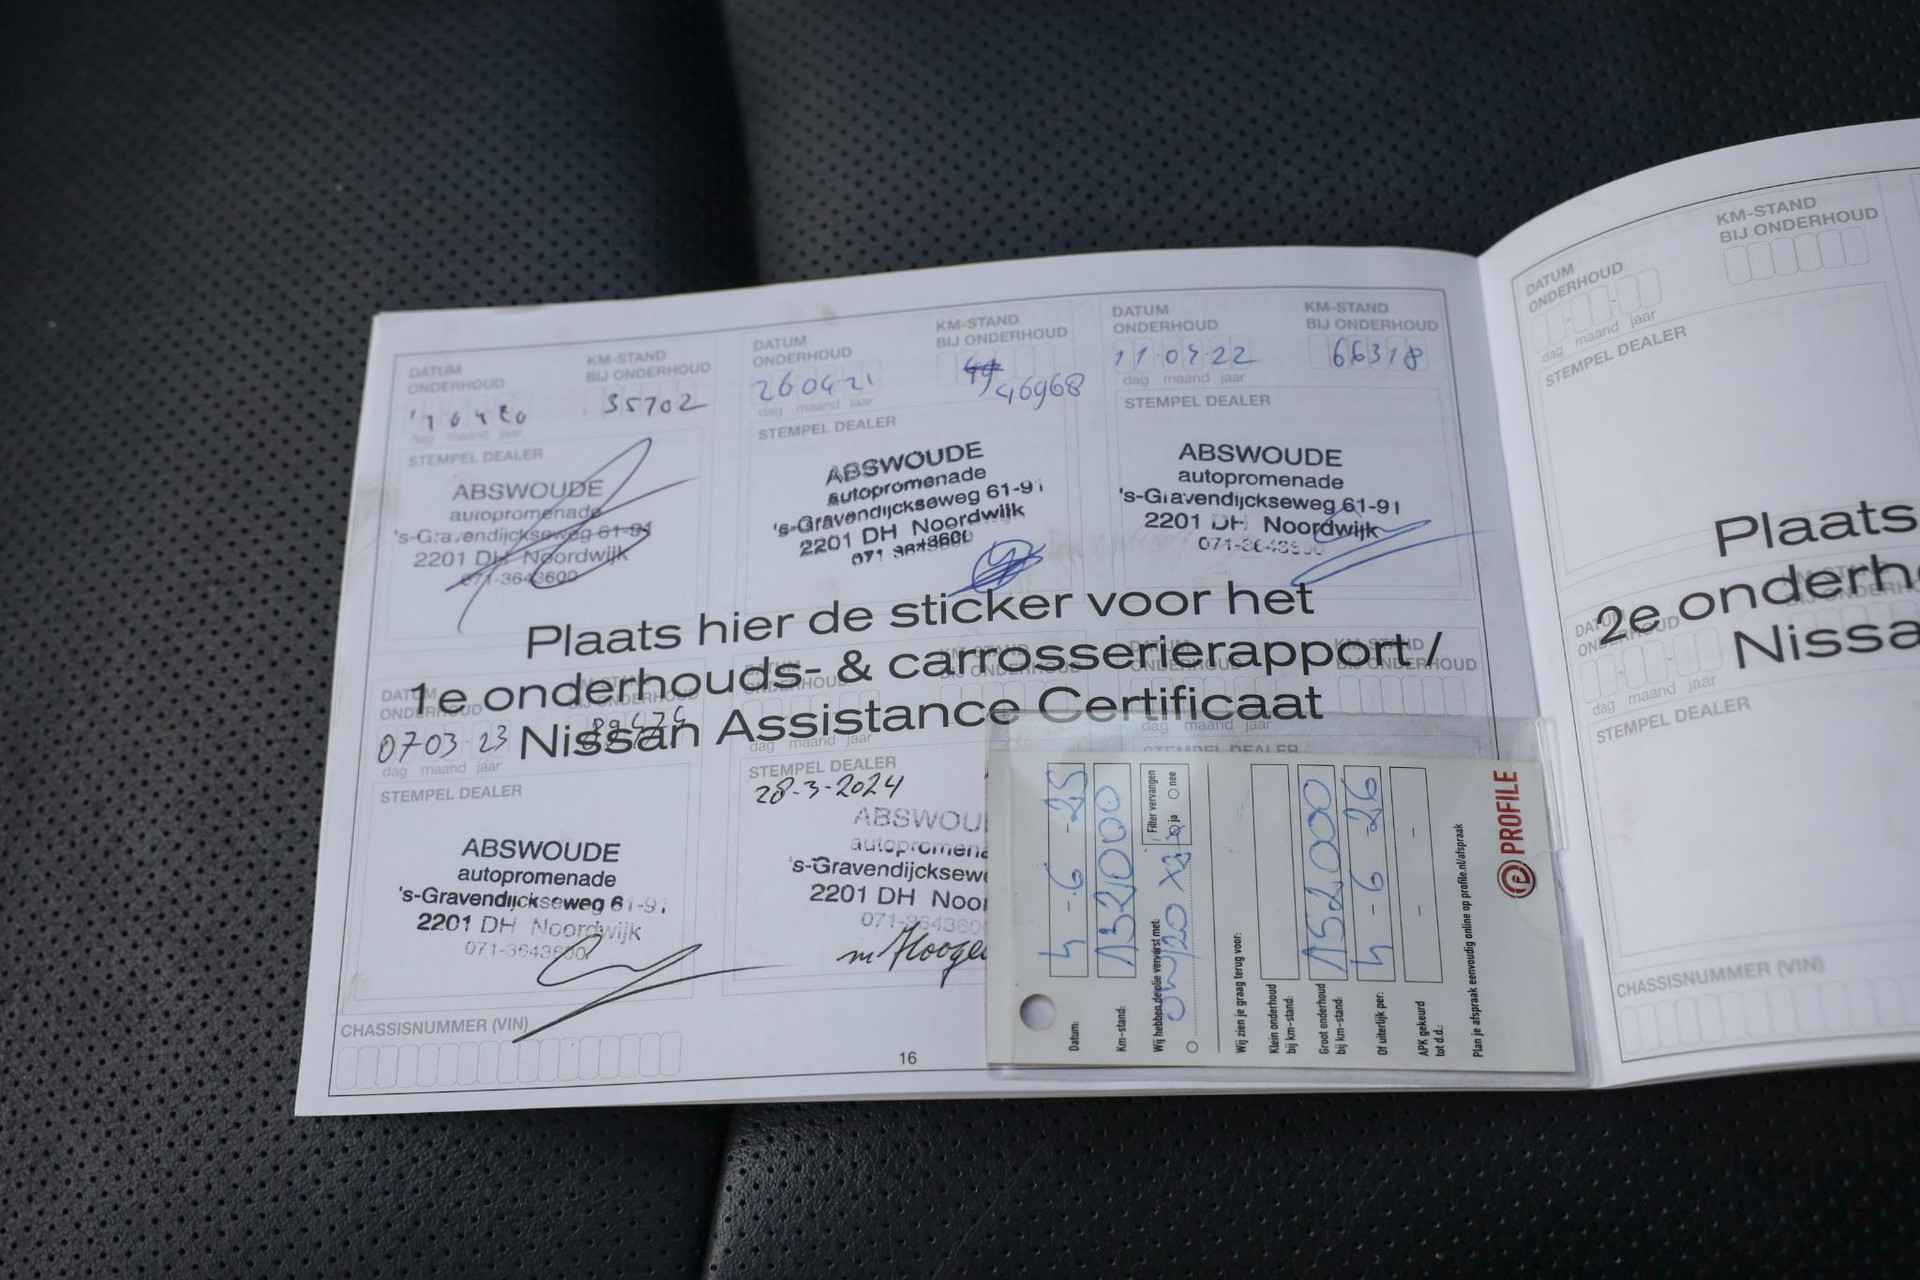 DATUM
ONDERHOUD
KM-STAND
BIJ ONDERHOUD
35702
dag maand jaar
STEMPEL DEALER
ABSWOUDE
autopromenade
's-Gravendijckseweg 61-91
2201 DH Noordwijk
071-3643600
DATUM
ONDERHOUD
KM-STAND
BIJ ONDERHOUD
260421
46968
dag maand jaar
STEMPEL DEALER
ABSWOUDE
autopromenade
's-Gravendijckseweg 61-91
2201 DH Noordwijk
071-3643600
DATUM
ONDERHOUD
KM-STAND
BIJ ONDERHOUD
11-04-22
66318
dag maand jaar
STEMPEL DEALER
ABSWOUDE
autopromenade
's-Gravendijckseweg 61-91
2201 DH Noordwijk
071-3643600
Plaats hier de sticker voor het
1e onderhouds- & carrosserierapport /
Nissan Assistance Certificaat
DATUM
ONDERHOUD
07-03-23
dag maand jaar
STEMPEL DEALER
ABSWOUDE
autopromenade
's-Gravendijckseweg 61-91
2201 DH Noordwijk
071-3643600
DATUM
ONDERHOUD
KM-STAND
BIJ ONDERHOUD
dag maand jaar
STEMPEL DEALER
28-3-2024
ABSWOU
autopromena
's-Gravendijcksew
2201 DH Noor
071-3643600
DATUM
KM-STAND
BIJ ONDERHOUD
dag maand jaar
STEMPEL DEALER
CHASSISNUMMER (VIN)
16
Datum: 4-6-25
Km-stand: 132000
Wij hebben de olie ververst met:
Filter vervangen
ja nee
Wij zien je graag terug voor:
Klein onderhoud
bij km-stand:
Groot onderhoud
bij km-stand: 152.000
Of uiterlijk per: 4-6-26
APK gekeurd
tot d.d.: - -
Plan je afspraak eenvoudig online op profile.nl/afspraak
PROFILE
DATUM
ONDERHOUD
KM-STAND
BIJ ONDERHOUD
dag maand jaar
STEMPEL DEALER
Plaats
2e onderh
Nissa
DATUM
ONDERHOUD
dag maand jaar
STEMPEL DEALER
CHASSISNUMMER (VIN)